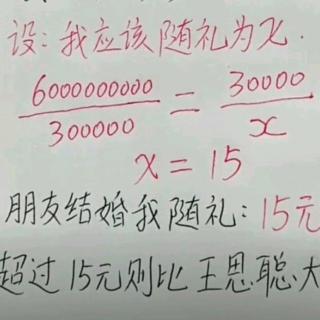 设:我应该随礼为x.
6000000000/300000 = 30000/x
x = 15
朋友结婚我随礼:15元
超过15元则比王思聪大